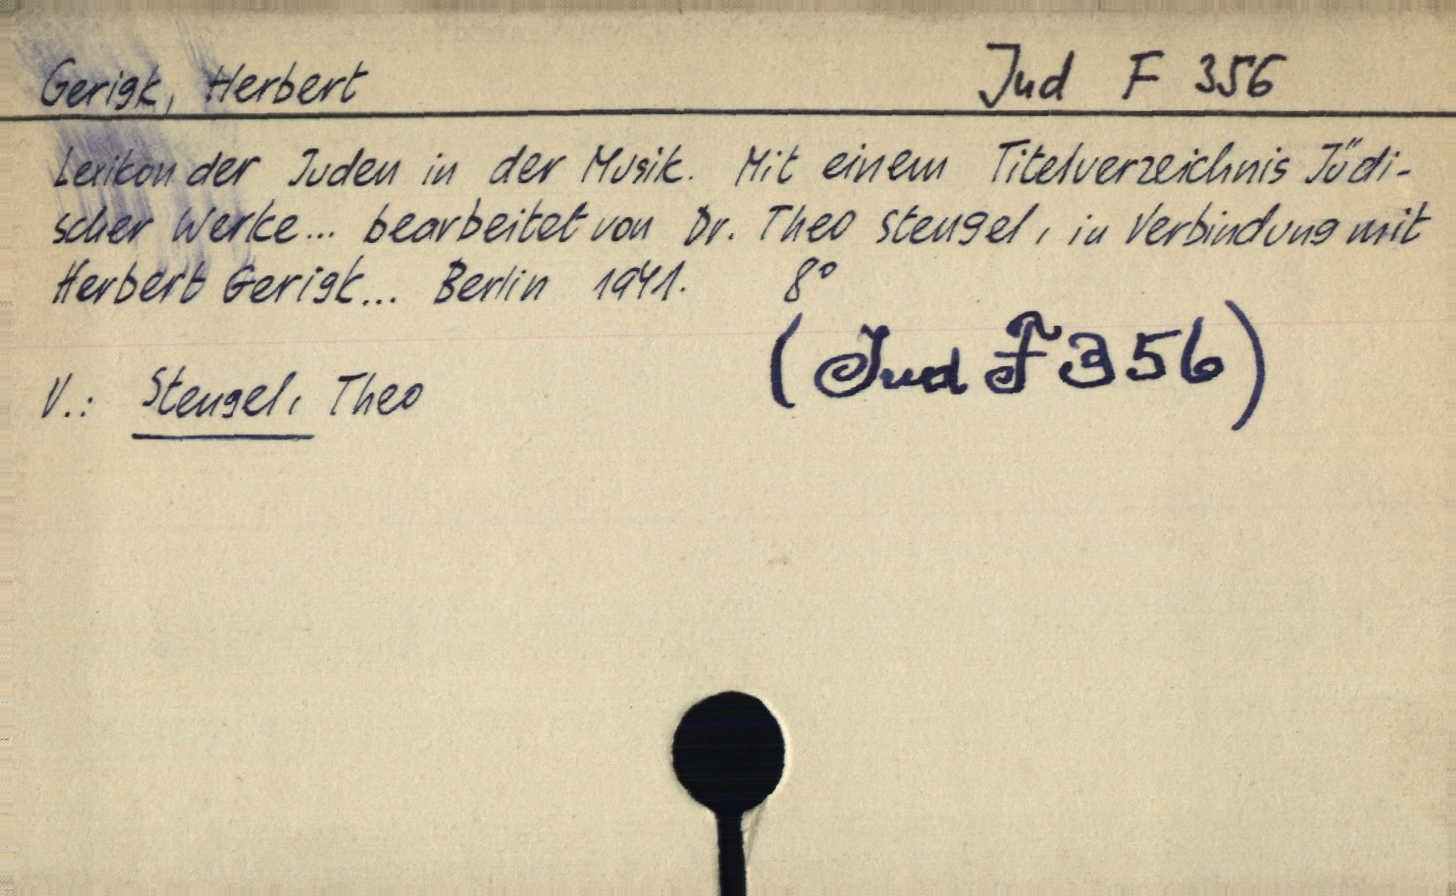 Gerigk, Herbert Jud F 356
Lexikon der Juden in der Musik. Mit einem Titelverzeichnis Jüdi-
scher Werke... bearbeitet von Dr. Theo Stengel, in Verbindung mit
Herbert Gerigk... Berlin 1941. 8°
(Jud F 356)
V.: Stengel, Theo